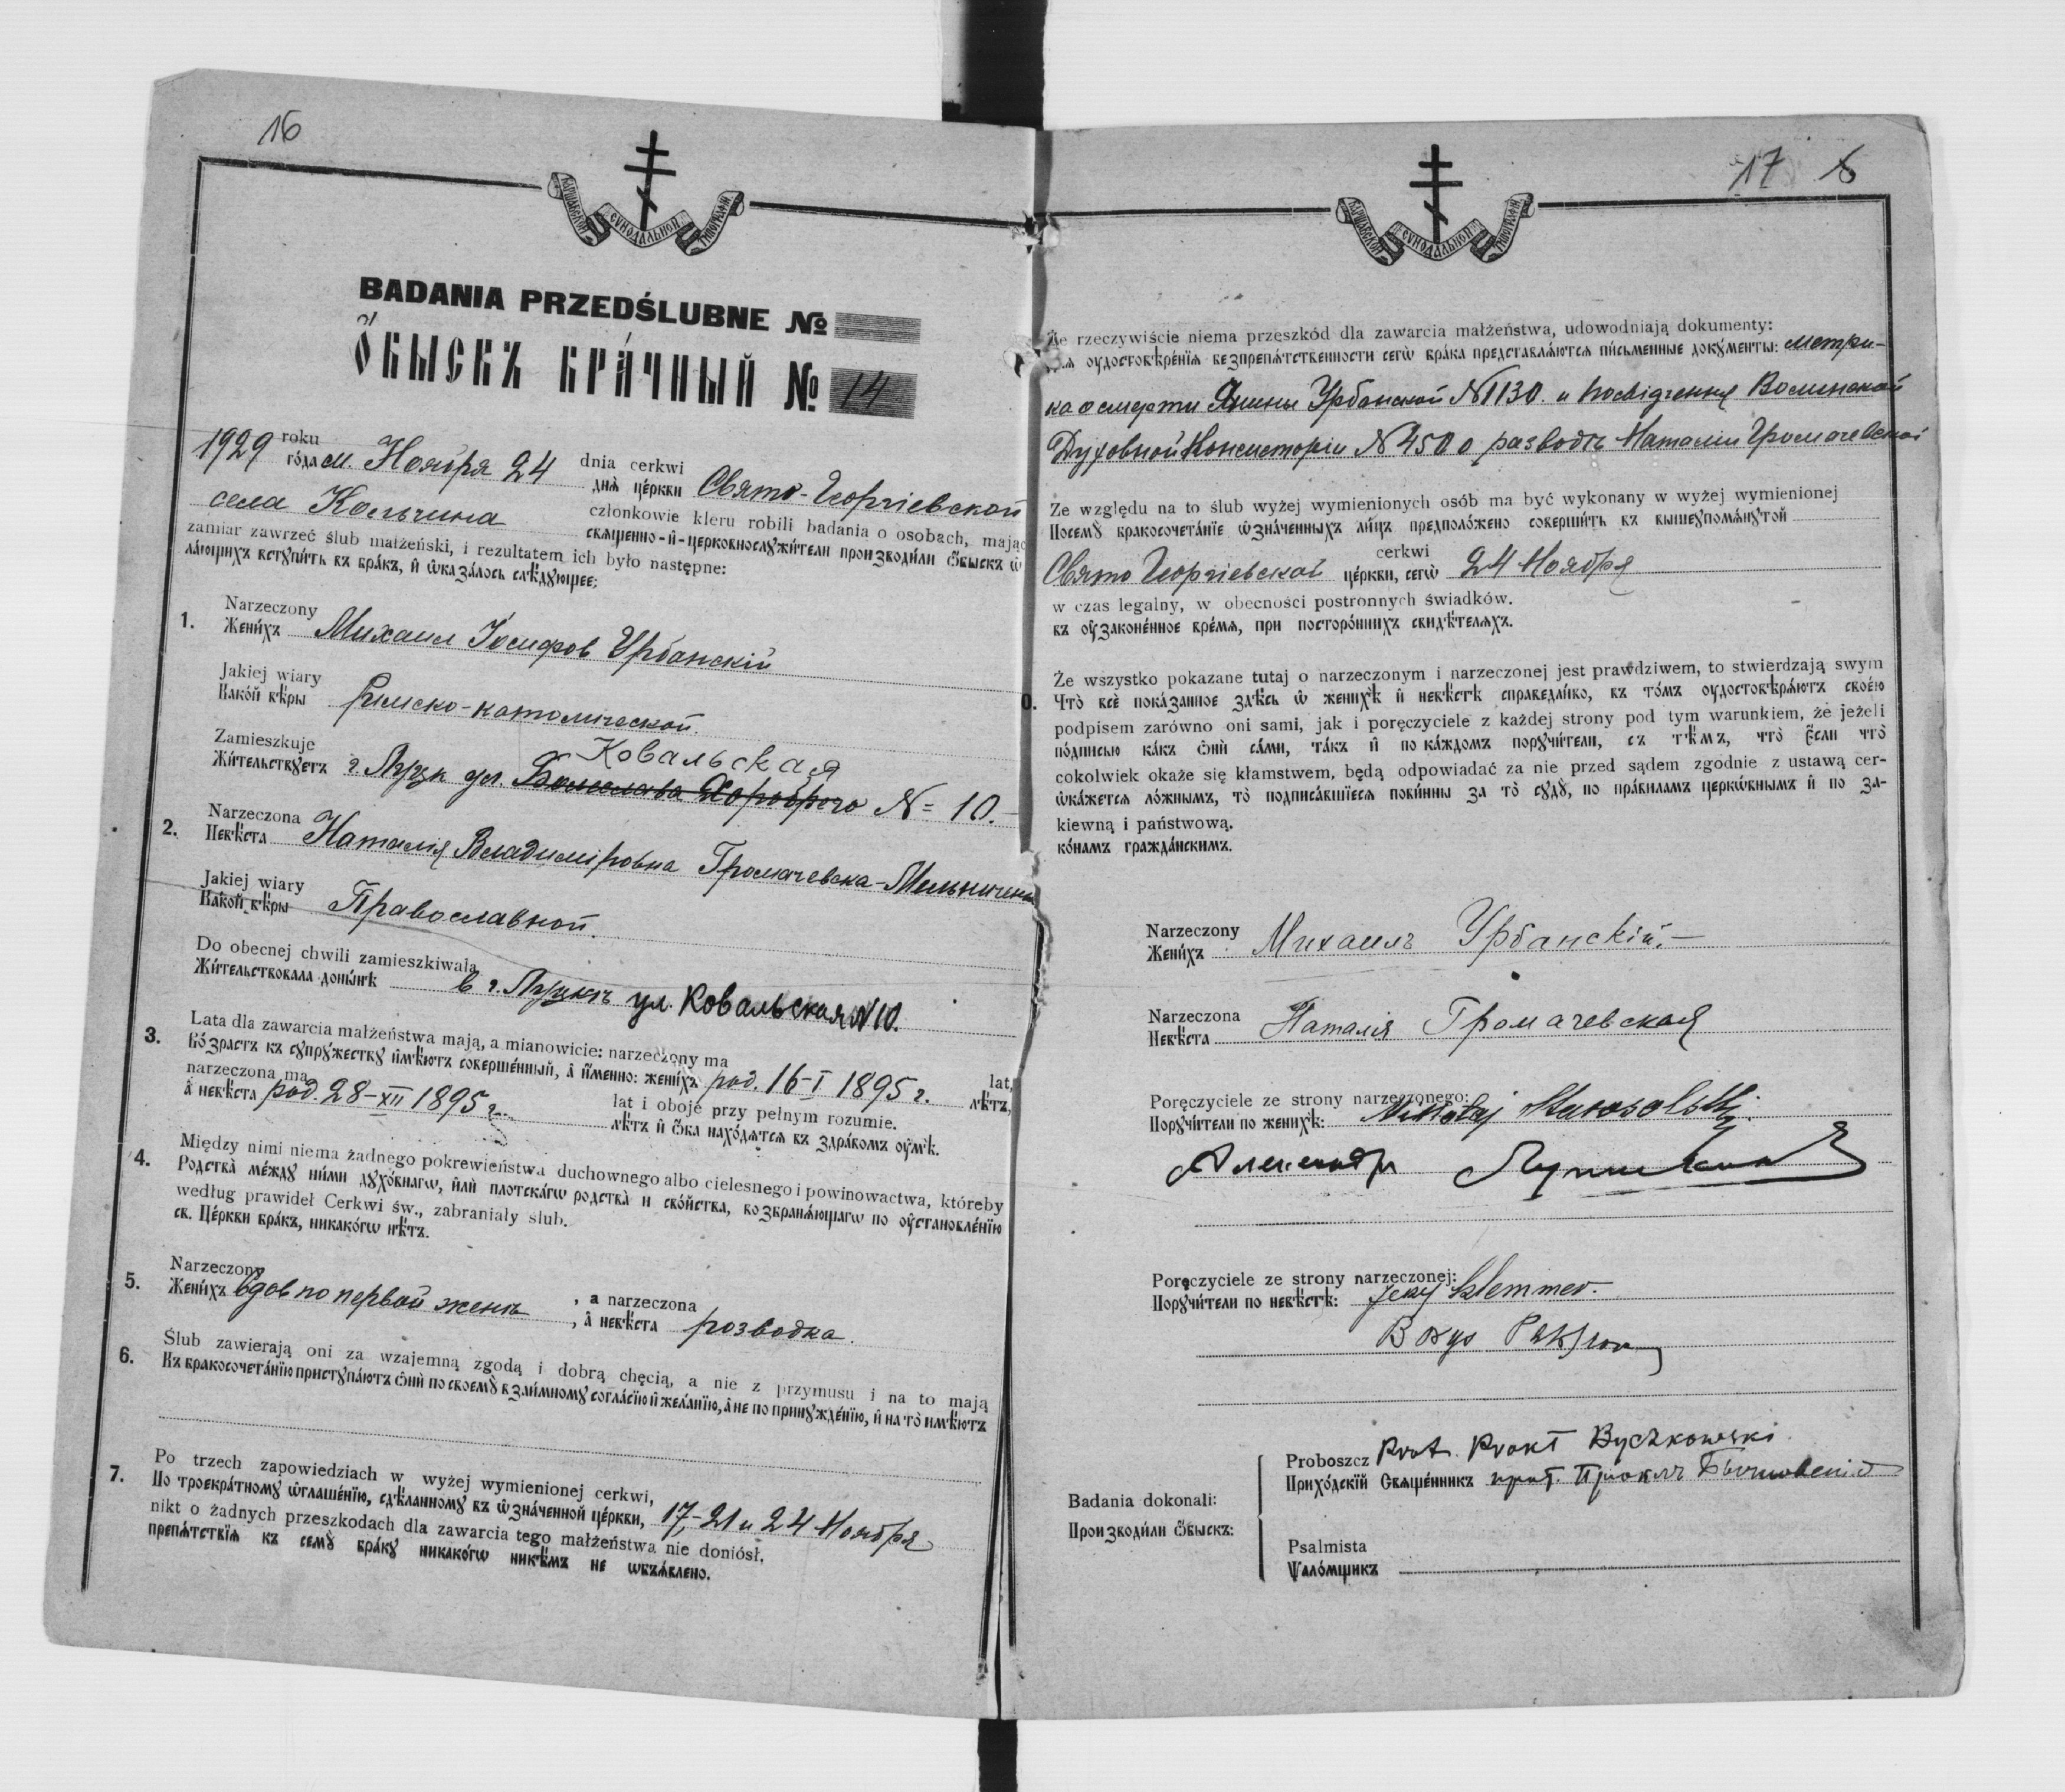 16
ВАРШАВСКОЙ СУНОДАЛЬНОЙ ТИПОГРАФІИ
BADANIA PRZEDŚLUBNE №
Ѻ҆БЫСКЪ БРА́ЧНЫЙ № 14
1929 roku
го́да м. Ноября 24 dnia cerkwi
днѧ̀ це́ркви Свято-Георгіевской
села Кольчина członkowie kleru robili badania o osobach, mając
свѧщенно-и҆-церковнослꙋжи́тели производи́ли ѻ҆́быскъ ѡ҆
zamiar zawrzeć ślub małżeński, i rezultatem ich było następne:
ла́ющихъ вступи́ть въ бра́къ, и҆ ѡ҆каза́лось слѣ́дующее:
1. Narzeczony
Жени́хъ Михаил Іосифов Урбанскій
Jakiej wiary
Како́й вѣ́ры Римско-католической
Zamieszkuje Ковальская
Жи́тельствꙋетъ г. Луцк ул. Болеслава Хороброго № 10.
2. Narzeczona
Невѣ́ста Наталія Владиміровна Громачевска-Мельничен
Jakiej wiary
Како́й вѣ́ры Православной.
Do obecnej chwili zamieszkiwała
Жи́тельствовала доны́нѣ в г. Луцкѣ ул. Ковальская № 10.
3. Lata dla zawarcia małżeństwa mają, a mianowicie: narzeczony ma
Во́зрастъ къ сꙋпрꙋ́жествꙋ и҆мѣ́ютъ соверше́нный, а҆ и҆́менно: жени́хъ род. 16-I 1895 г. lat,
лѣ́тъ,
narzeczona ma
а҆ невѣ́ста род. 28-XII 1895 г. lat i oboje przy pełnym rozumie.
лѣ́тъ и҆ ѻ҆́ба нахо́дѧтсѧ въ здра́вомъ ᲂу҆мѣ̀.
4. Między nimi niema żadnego pokrewieństwa duchownego albo cielesnego i powinowactwa, któreby
Родства̀ ме́ждꙋ ни́ми дꙋхо́внагѡ, и҆лѝ плотска́гѡ родства̀ и сво́йства, возбранѧ́ющагѡ по ᲂу҆становле́нїю
według prawideł Cerkwi św., zabraniały ślub.
св. Це́ркви бра́къ, никако́гѡ нѣ́тъ.
5. Narzeczony
Жени́хъ вдов по первой женѣ , a narzeczona
, а҆ невѣ́ста розводка.
6. Ślub zawierają oni za wzajemną zgodą i dobrą chęcią, a nie z przymusu i na to mają
Къ бракосочета́нїю пристꙋпа́ютъ ѻ҆нѝ по своемꙋ̀ взаи́мномꙋ согла́сїю и҆ жела́нїю, а҆ не по принꙋжде́нїю, и҆ на то̀ имѣ́ютъ
7. Po trzech zapowiedziach w wyżej wymienionej cerkwi,
По троекра́тномꙋ ѡ҆глаше́нїю, сдѣ́ланномꙋ въ ѡ҆зна́ченной це́ркви, 17,-21 и 24 Ноября
nikt o żadnych przeszkodach dla zawarcia tego małżeństwa nie doniósł.
препѧ́тствїѧ къ семꙋ̀ бра́кꙋ никако́гѡ никѣ́мъ не ѡбъѧ́влено.
17
ВАРШАВСКОЙ СУНОДАЛЬНОЙ ТИПОГРАФІИ
Że rzeczywiście niema przeszkód dla zawarcia małżeństwa, udowodniają dokumenty:
ᲂу҆достовѣре́нїѧ безпрепѧ́тственности сегѡ̀ бра́ка представлѧ́ютсѧ пи́сьменные докꙋме́нты: метри-
ка о смерти Янины Урбанской № 1130. и посвідчення Волинской
Духовной Консисторіи № 450 о разводѣ Наталіи Громачевской
Ze względu na to ślub wyżej wymienionych osób ma być wykonany w wyżej wymienionej
Посемꙋ̀ бракосочета́нїе ѡ҆зна́ченныхъ ли́цъ предполо́жено соверши́ть въ вышеупомѧ́нꙋтой
Свято Георгіевской cerkwi
це́ркви, сегѡ̀ 24 Ноября
w czas legalny, w obecności postronnych świadków.
въ ᲂу҆законе́нное вре́мѧ, при посторо́ннихъ свидѣ́телѧхъ.
Że wszystko pokazane tutaj o narzeczonym i narzeczonej jest prawdziwem, to stwierdzają swym
0. Что̀ всѐ пока́занное здѣ́сь ѡ҆ женихѣ̀ и҆ невѣ́стѣ справедли́во, въ то́мъ ᲂу҆достовѣрѧ́ютъ свое́ю
podpisem zarówno oni sami, jak i poręczyciele z każdej strony pod tym warunkiem, że jeżeli
по́дписью ка́къ ѻ҆нѝ са́ми, та́къ и҆ по ка́ждомъ порꙋчи́тели, съ тѣ́мъ, что̀ є҆́сли что̀
cokolwiek okaże się kłamstwem, będą odpowiadać za nie przed sądem zgodnie z ustawą cer-
ѡ҆ка́жетсѧ ло́жнымъ, то̀ подписа́вшїесѧ пови́нны за то̀ сꙋдꙋ̀, по пра́виламъ церкѡ́внымъ и҆ по за-
kiewną i państwową.
ко́намъ гражда́нскимъ.
Narzeczony
Жени́хъ Михаилъ Урбанскій.
Narzeczona
Невѣ́ста Наталія Громачевская
Poręczyciele ze strony narzeczonego:
Порꙋчи́тели по женихѣ̀: Mikołaj
Александр
Poręczyciele ze strony narzeczonej:
Порꙋчи́тели по невѣ́стѣ: Jerzy Klemmer.
Badania dokonali:
Производи́ли ѻ҆́быскъ:
Proboszcz Prot. Prokł Byczkowski
Прихо́дскїй Свѧще́нникъ прот. Проклъ Бычковскій
Psalmista
Ѱало́мщикъ